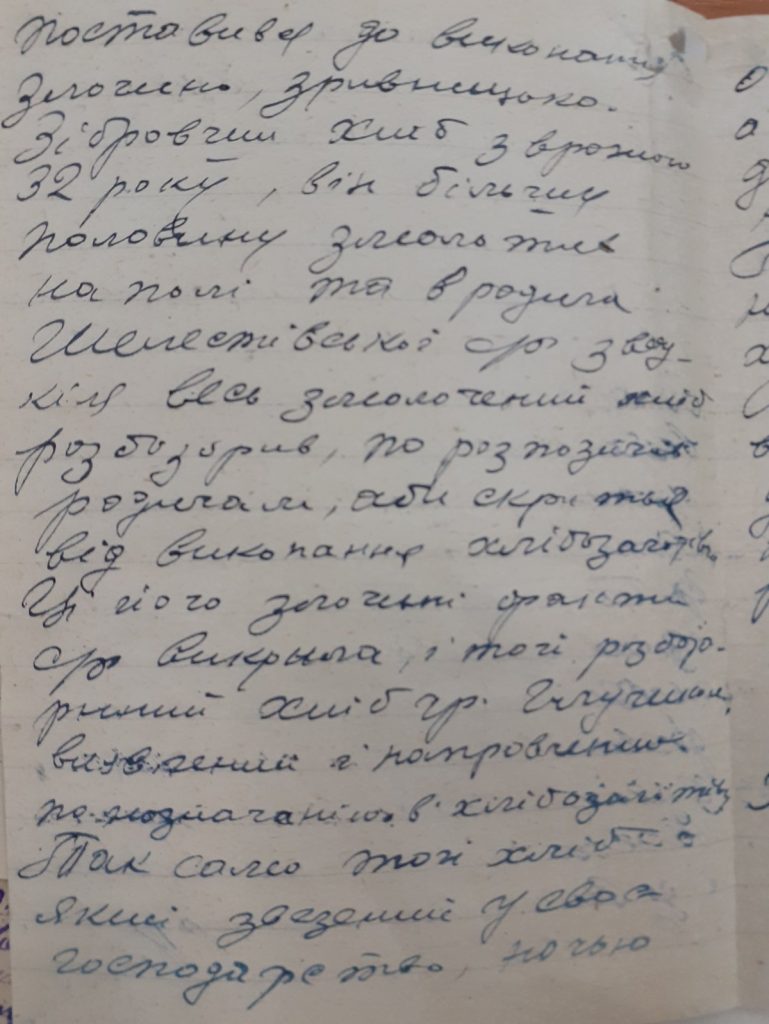 поставився до виконання
злочинно, зривницько.
Зібравчии хліб з врожаю
32 року, він більчу
половину змолотив
на полі та в родича
Шелестівської с/р звід-
кіля весь змолочений хліб
розбазарив, по розпозичав
родичам, аби скритья
від виконання хлібозаготівл.
Ці його злочині факти
с/р викрила, і точі розбаза-
рений хліб гр.
виявлений і направлений
по позначанню в хлібозаготівлю
Так само точі хліб
який звезений у своє
господарство, ночью